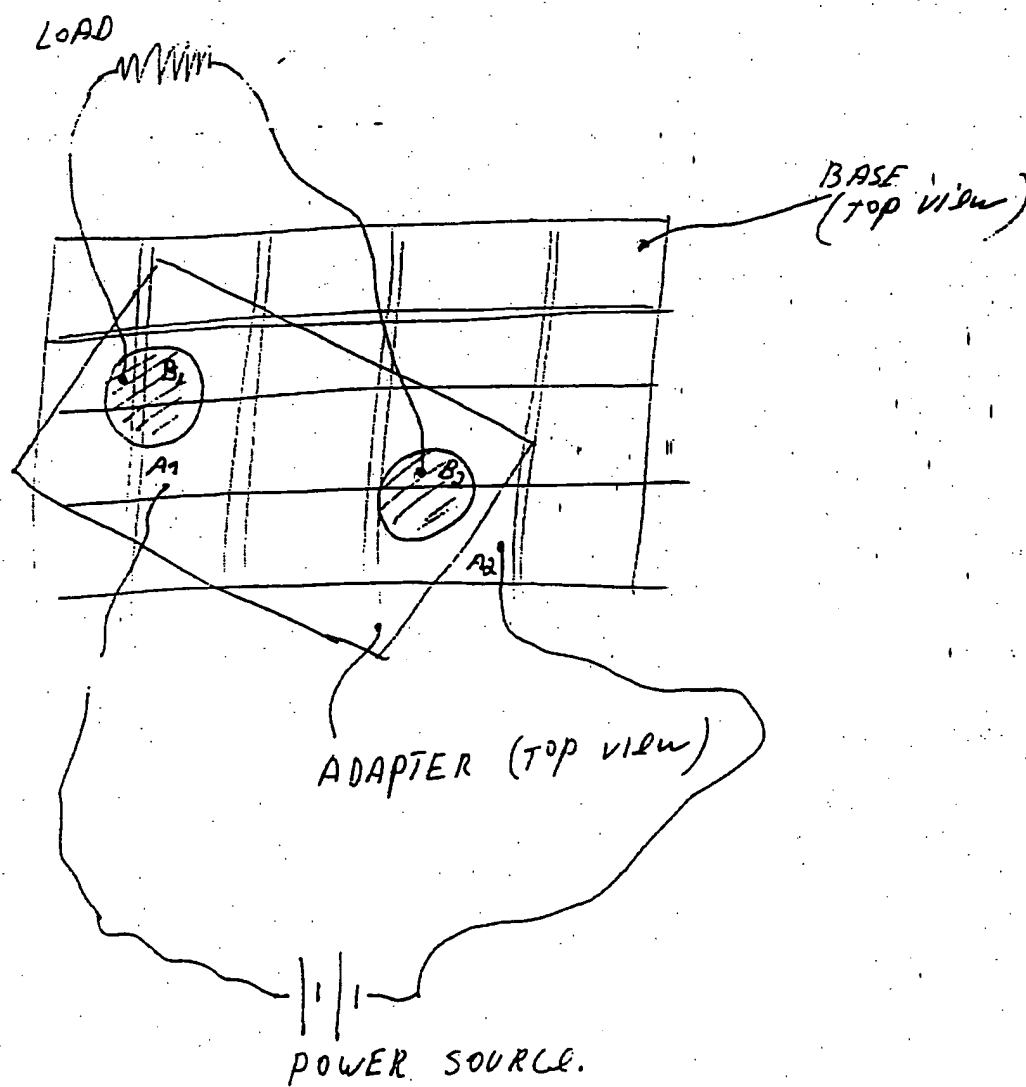 LOAD
BASE
(TOP view)
B1
A1
B2
A2
ADAPTER (TOP view)
POWER SOURCE.